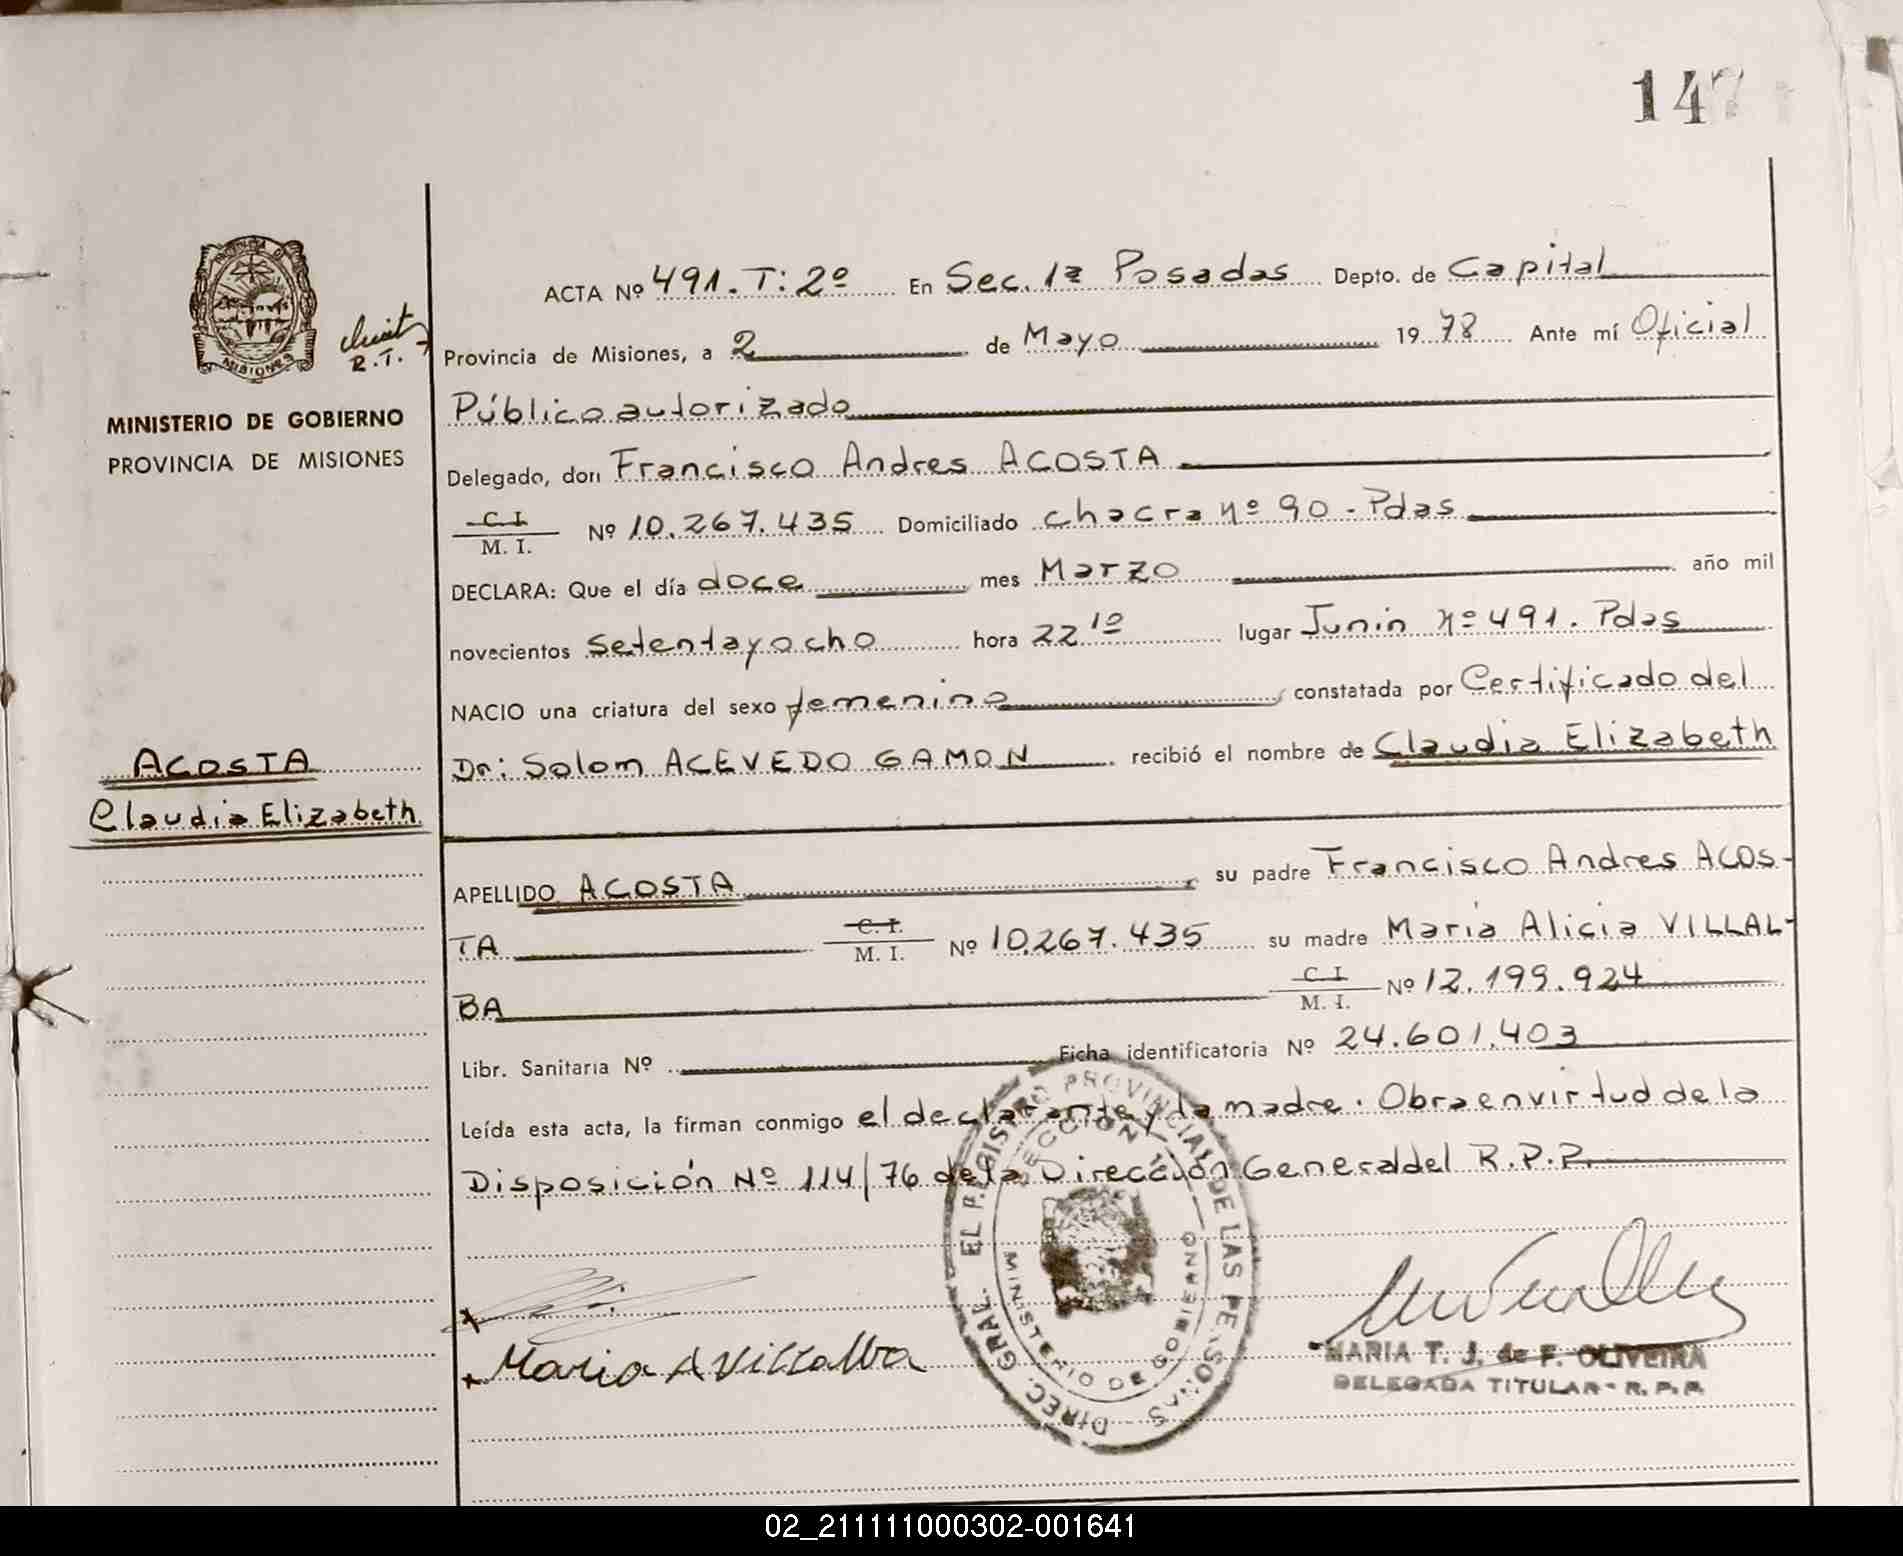 147
ACTA Nº 491. T: 2º En Sec. 1ª Posadas Depto. de Capital
Provincia de Misiones, a 2 de Mayo 1978 Ante mí Oficial
Público autorizado
Delegado, don Francisco Andres ACOSTA
C. I. M. I. Nº 10.267.435 Domiciliado chacra nº 90 - Pdas
DECLARA: Que el día doce mes Marzo año mil
novecientos setenta y ocho hora 22 10 lugar Junin Nº 491. Pdas
NACIO una criatura del sexo femenino constatada por Certificado del
Dr: Solom ACEVEDO GAMON recibió el nombre de Claudia Elizabeth
APELLIDO ACOSTA su padre Francisco Andres ACOS-
TA C. I. M. I. Nº 10.267.435 su madre Maria Alicia VILLAL-
BA C. I. M. I. Nº 12.199.924
Libr. Sanitaria Nº Ficha identificatoria Nº 24.601.403
Leída esta acta, la firman conmigo el declarante y la madre. Obra en virtud de la
Disposición Nº 114/76 de la Dirección General del R.P.P.
R.T.
PROVINCIA DE
MISIONES
MINISTERIO DE GOBIERNO
PROVINCIA DE MISIONES
ACOSTA
Claudia Elizabeth
Maria A Villalba
DIREC. GRAL. EL REGISTRO PROVINCIAL DE LAS PERSONAS
SECCION 1ª
MINISTERIO DE GOBIERNO
MARIA T. J. de F. OLIVEIRA
DELEGADA TITULAR - R. P. P.
02_211111000302-001641